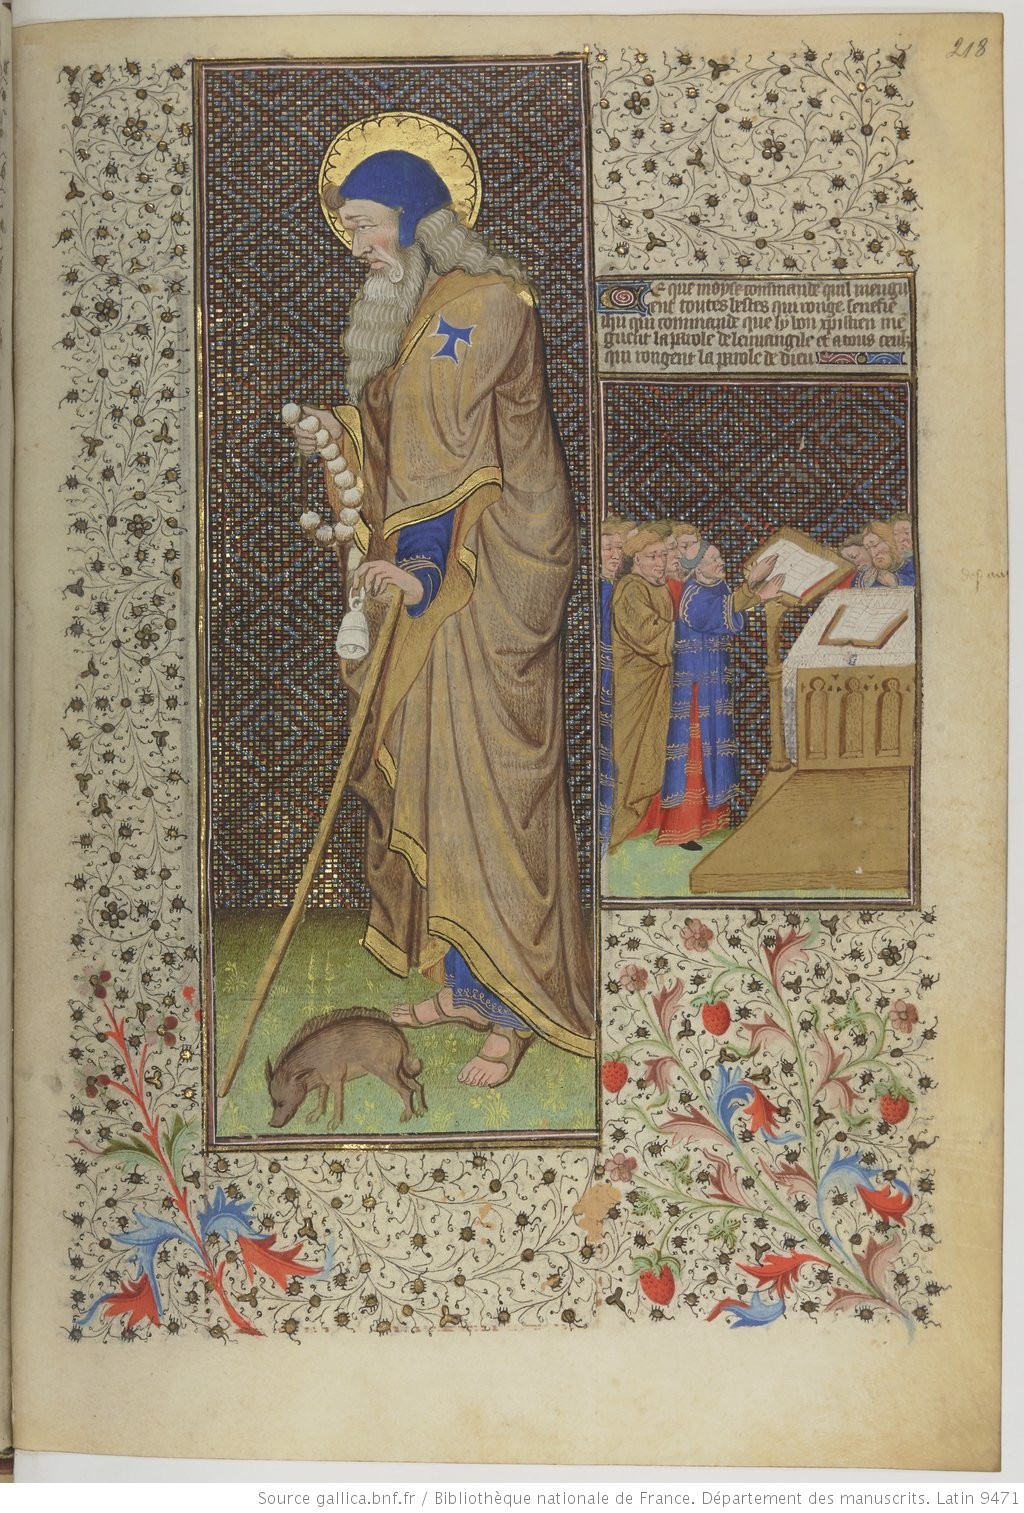 218
Ce que moyse commande quil mengu
ent toutes bestes qui ronge senefie
ihu qui commande que ly bon xpistien me
guent la parole de leuuangile et a tous ceulz
qui rongent la parole de dieu
Source gallica.bnf.fr / Bibliothèque nationale de France. Département des manuscrits. Latin 9471